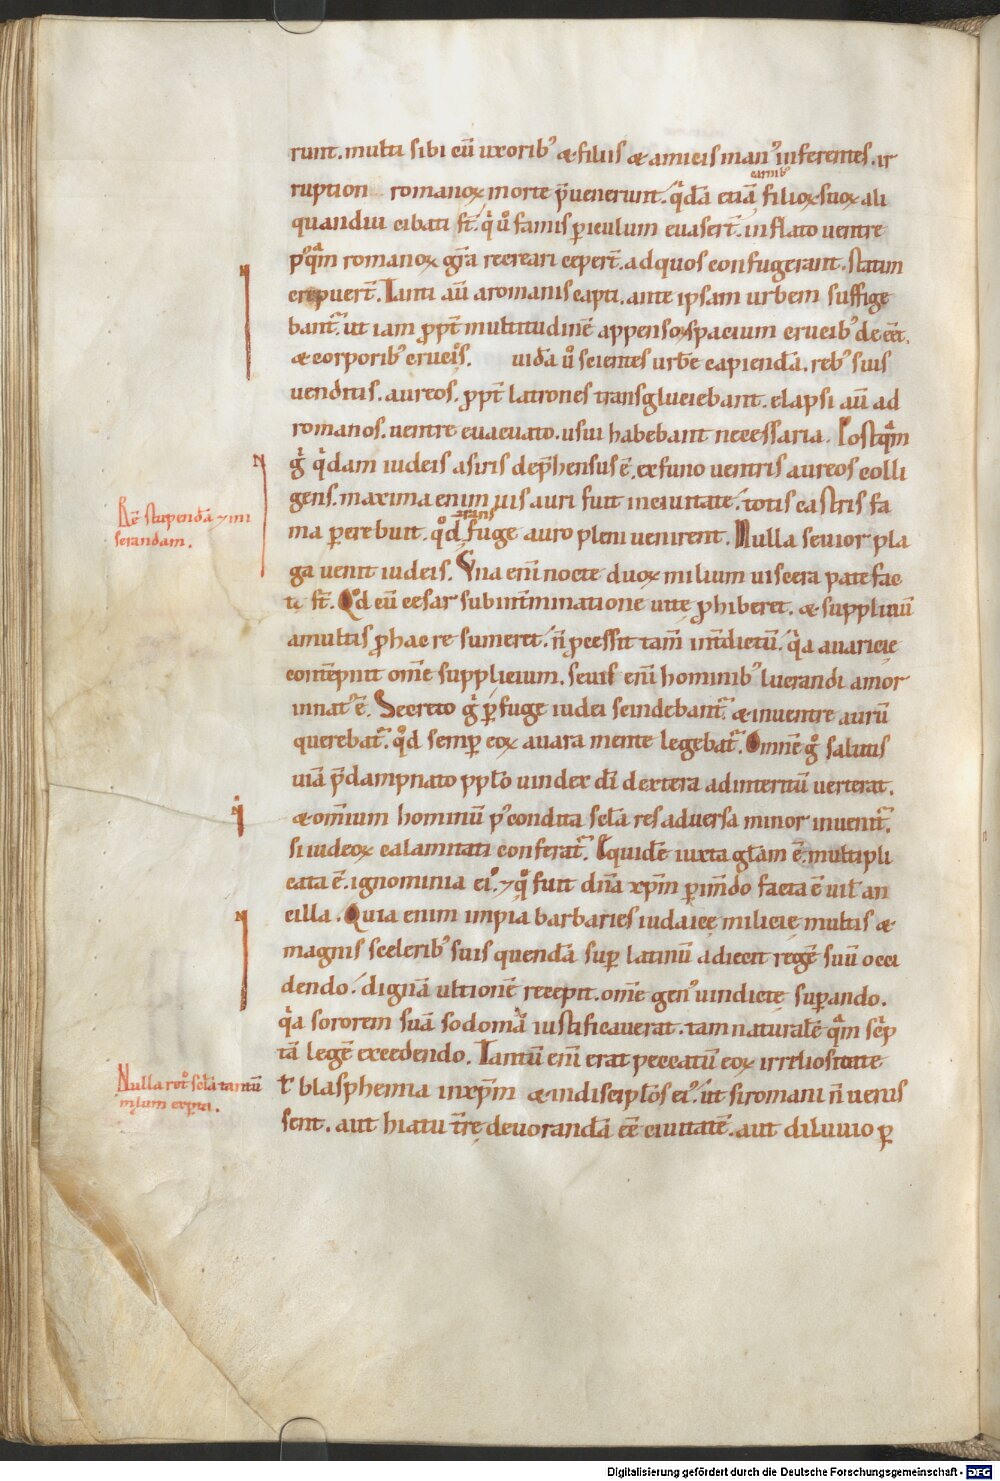 runt. multi sibi cū uxorib᾽ & filiis & amicis man᾽ inferentes. ir
carnib᾽
ruption romanoꝝ morte p̄uenerunt. q̇dā etiā filioꝝ suoꝝ ali
quandiu cibati st̄. q̇ u̇ famis ꝑiculum euasert̄. inflato uentre
p᾽q̄m romanoꝝ gr̄a recreari ceꝑt̄. ad quos confugerant. statim
crepuert̄. Tanti aū a romanis capti. ante ipsam urbem suffige
bant᾽. ut iam ꝓpt̄ multitudinē appensoꝝ spacium crucib᾽ de eēt.
& corporib᾽ cruc᾽s. uidā u̇ scientes urbē capiendā. reb᾽ suis
uenditis. aureos. ꝓpt̄ latrones transgluciebant. elapsi aū ad
romanos. uentre euacuato. usui habebant necessaria. Postq̄m
g̊ q̇dam iudeis a siris dep̄hensus ē. ex funo uentris aureos colli
gens. maxima enim uis auri fuit in ciuitate. totis castris fa
trans
ma ꝑcrebuit. q̊d fuge auro pleni uenirent. Nulla seuior pla
ga uenit iudeis. Vna eni nocte duoꝝ milium uiscera patefac
ti st̄. Qd̊ cū cesar sub int̄minatione uite ꝓhiberet. & suppliciū
a multis ꝓ hac re sumeret. n̄ pcessit tam̄ int̄dictū. q̇a auaricię
contēpnit om̄e supplicium. seuis eni hominib᾽ lucrandi amor
innat᾽ ē. Secreto g̊ ꝑfuge iudei scindebant᾽. & in uentre aurū
querebat᾽. q̊d semꝑ eoꝝ auara mente legebat᾽. Omnē g̊ salutis
uiā p̄dampnato pplo uindex di dextera ad interitū uerterat.
& om̄ium hominū p᾽ condita scl̄a res aduersa minor inuenit᾽.
si iudeoꝝ calamitati conferat᾽. Iquidē iuxta glām ē. multipli
cata ē. ignominia ei᾽. ⁊ q̊ fuit dn̄a xp̄m ꝑimdo facta ē uil an
cilla. Quia enim impia barbaries iudaice milicie multis &
magnis sceleribꝰ suis quendā suꝑ latinū adiecit regē suū occi
dendo. dignā ultionē recepit. om̄e gen᾽ uindicte suꝑando.
q̇a sororem suā sodomā iustificauerat. tam naturalē q̄m sc̄p
tā legē excedendo. Tantū eni erat peccatū eoꝝ irreliositate
t᾽ blasphemia in xp̄m & in discip̄l̄os ei᾽. ut si romani n̄ uenis
sent. aut hiatu t̄re deuorandā eē ciuitatē. aut diluuio ꝑ
Rē stupendā ⁊ mi
serandam.
Nulla rot᾽ scl̄a tantū
m̄lum exp̄ti.